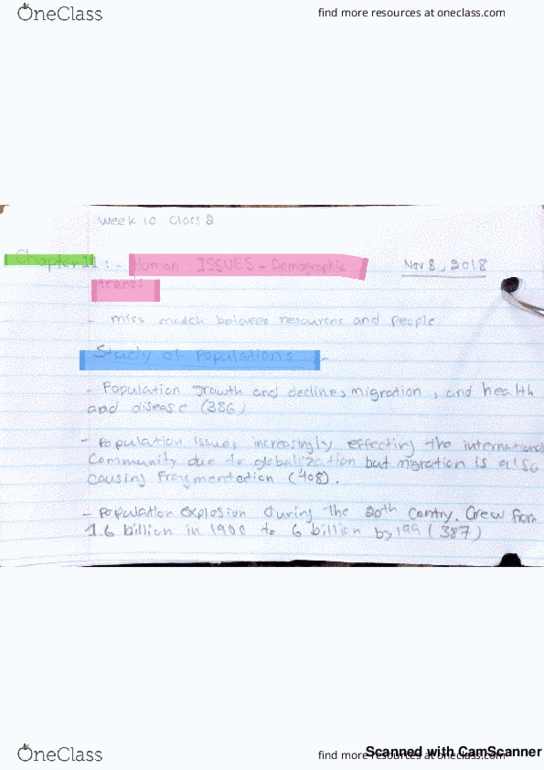 OneClass
find more resources at oneclass.com
Week 10 Class 2
Chapter 11 : - Human ISSUES - Demographic
Nov 8, 2018
trends
- miss match between resources and people
Study of Populations -
- Population growth and declines, migration, and health
and disease (386)
- Population issues increasingly effecting the international
community due to globalization but migration is also
causing fragmentation (408).
- Population explosion during the 20th Centry. Grew from
1.6 billion in 1900 to 6 billion by 199 (387)
OneClass
find more resources at oneclass.com
Scanned with CamScanner